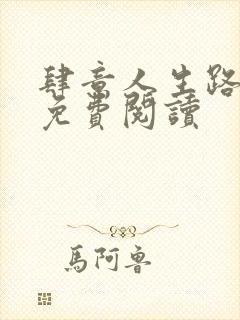 肆意人生路
免費閱讀
馬阿魯